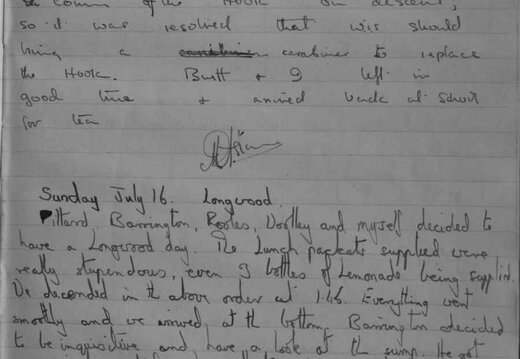 of the Hook on descent,
so it was resolved that wis should
bring a carabiner to replace
the Hook. Butt & I left in
good time & arrived back at School
for tea
Sunday July 16. Longwood.
Pittard, Barrington, Rooles, Wortley and myself decided to
have a Longwood day. The Lunch packets supplied were
really stupendous, even 3 bottles of Lemonade being supplied.
We descended in the above order at 1.45. Everything went
smoothly and we arrived at the bottom, Barrington decided
to be inquisitive and have a look at the sump. He got